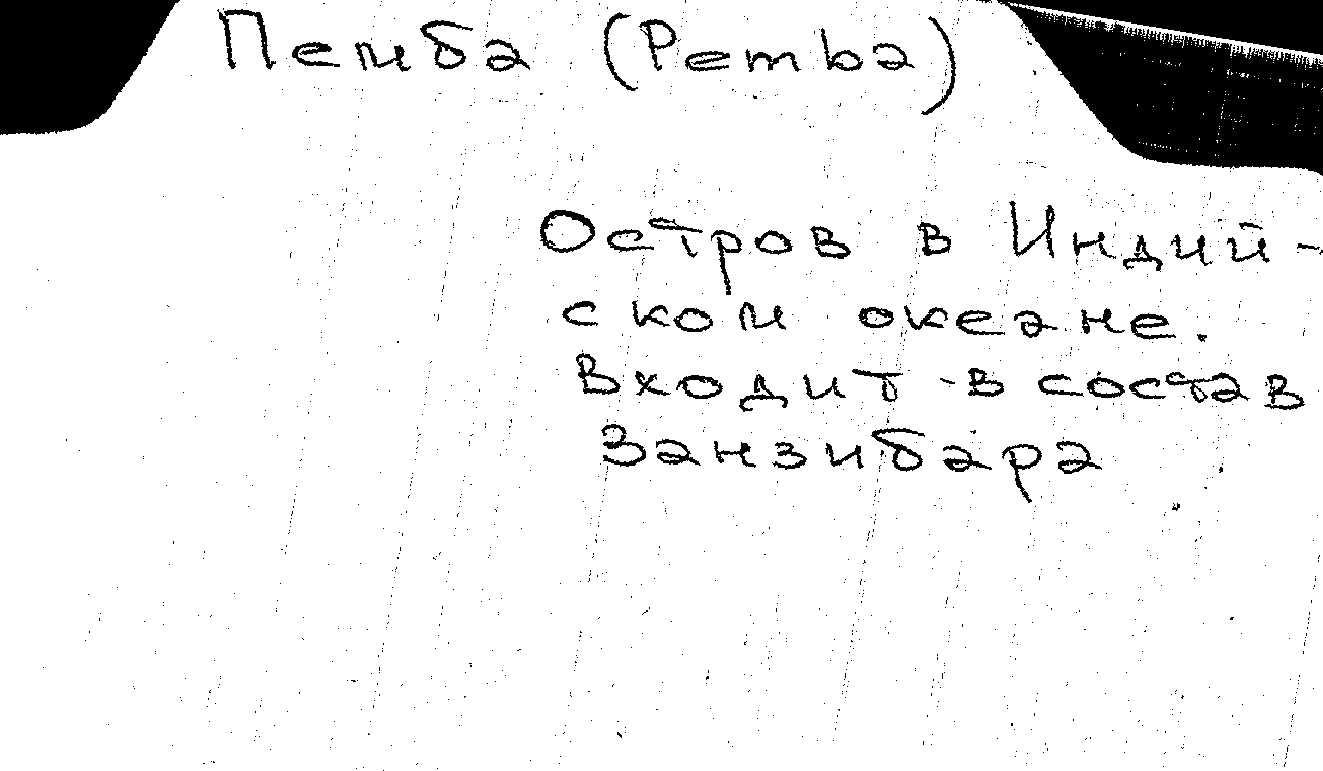 Пемба (Pemba)
Остров в Индий-
ском океане.
Входит в состав
Занзибара